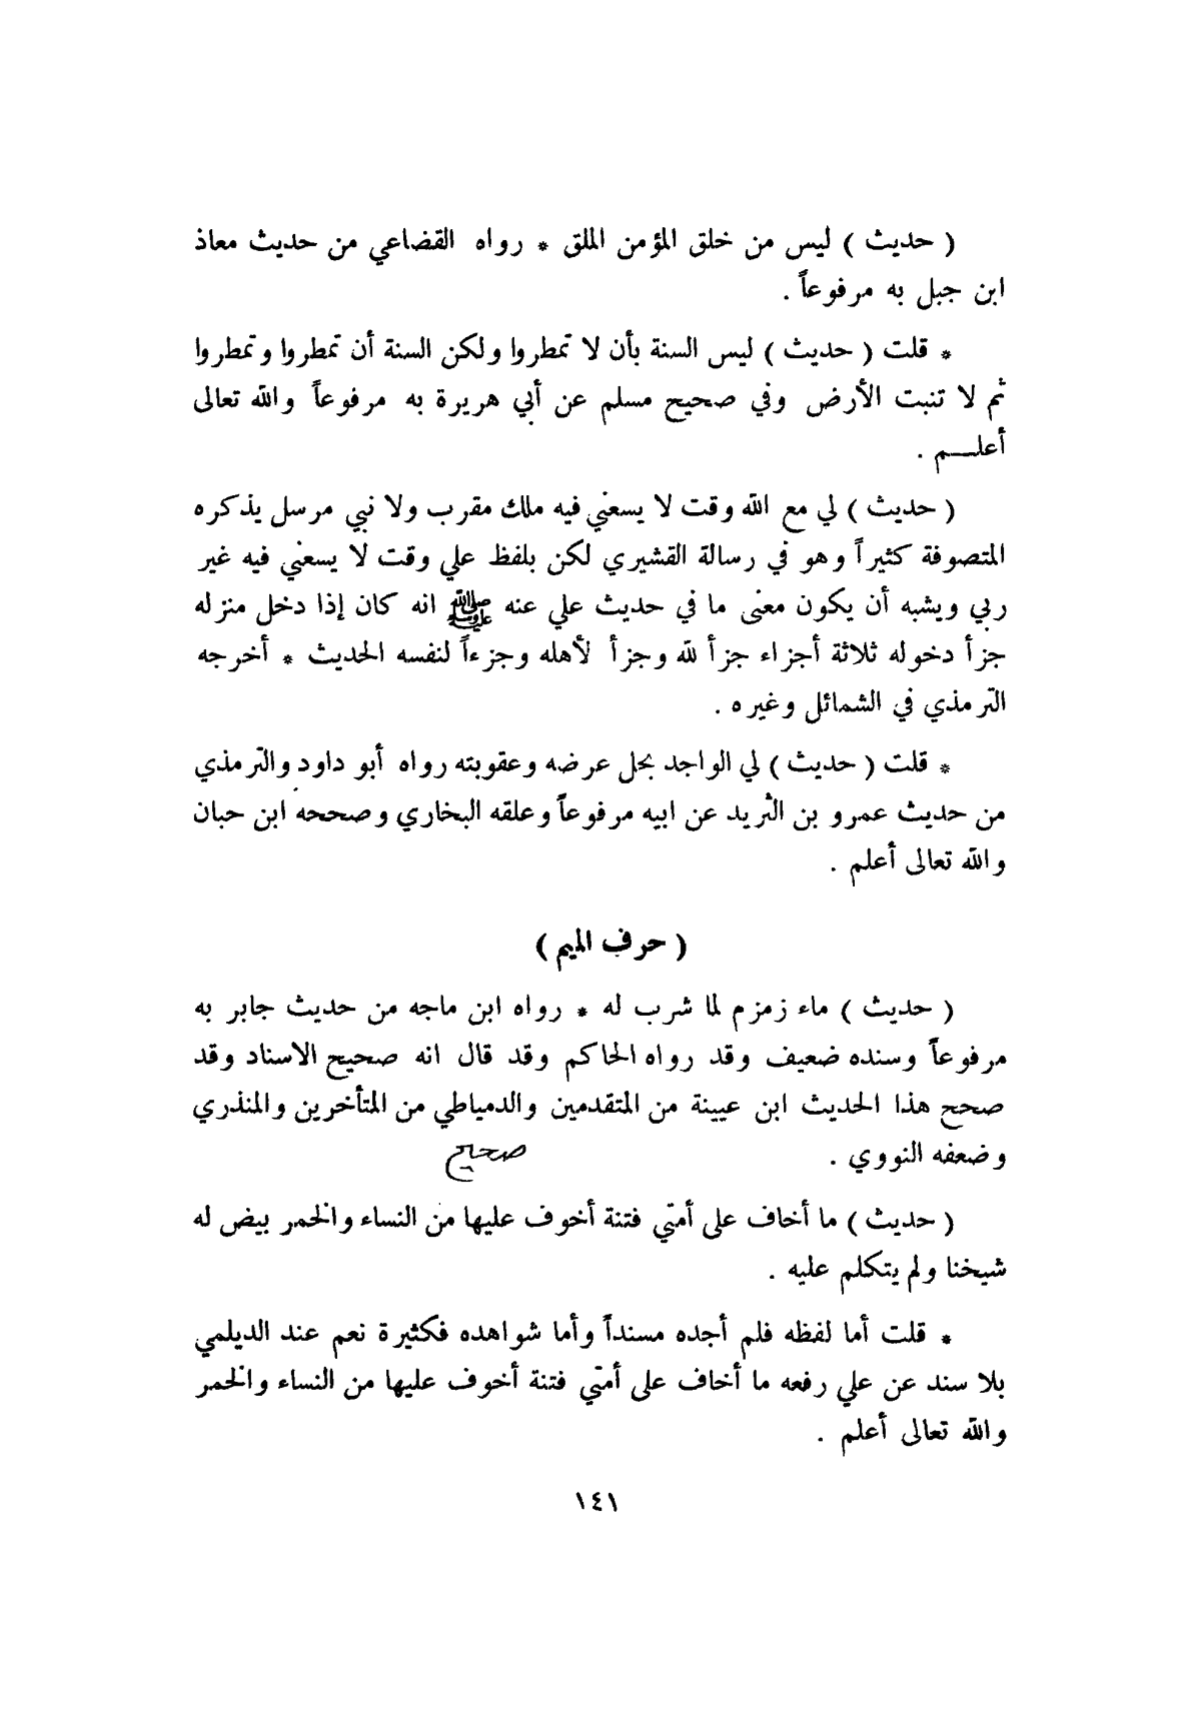 ( حديث ) ليس من خلق المؤمن الملق * رواه القضاعي من حديث معاذ
ابن جبل به مرفوعاً .
* قلت ( حديث ) ليس السنة بأن لا تمطروا ولكن السنة أن تمطروا وتمطروا
ثم لا تنبت الأرض وفي صحيح مسلم عن أبي هريرة به مرفوعاً والله تعالى
أعلـــم .
( حديث ) لي مع الله وقت لا يسعني فيه ملك مقرب ولا نبي مرسل يذكره
المتصوفة كثيراً وهو في رسالة القشيري لكن بلفظ علي وقت لا يسعني فيه غير
ربي ويشبه أن يكون معنى ما في حديث علي عنه ﷺ انه كان إذا دخل منزله
جزأ دخوله ثلاثة أجزاء جزأ لله وجزأ لأهله وجزءاً لنفسه الحديث * أخرجه
الترمذي في الشمائل وغيره .
* قلت ( حديث ) لي الواجد بحل عرضه وعقوبته رواه أبو داود والترمذي
من حديث عمرو بن الثريد عن ابيه مرفوعاً وعلقه البخاري وصححه ابن حبان
والله تعالى أعلم .
( حرف الميم )
( حديث ) ماء زمزم لما شرب له * رواه ابن ماجه من حديث جابر به
مرفوعاً وسنده ضعيف وقد رواه الحاكم وقد قال انه صحيح الاسناد وقد
صحح هذا الحديث ابن عيينة من المتقدمين والدمياطي من المتأخرين والمنذري
وضعفه النووي . صحيح
( حديث ) ما أخاف على أمتي فتنة أخوف عليها من النساء والخمر بيض له
شيخنا ولم يتكلم عليه .
* قلت أما لفظه فلم أجده مسنداً وأما شواهده فكثيرة نعم عند الديلمي
بلا سند عن علي رفعه ما أخاف على أمتي فتنة أخوف عليها من النساء والخمر
والله تعالى أعلم .
١٤١